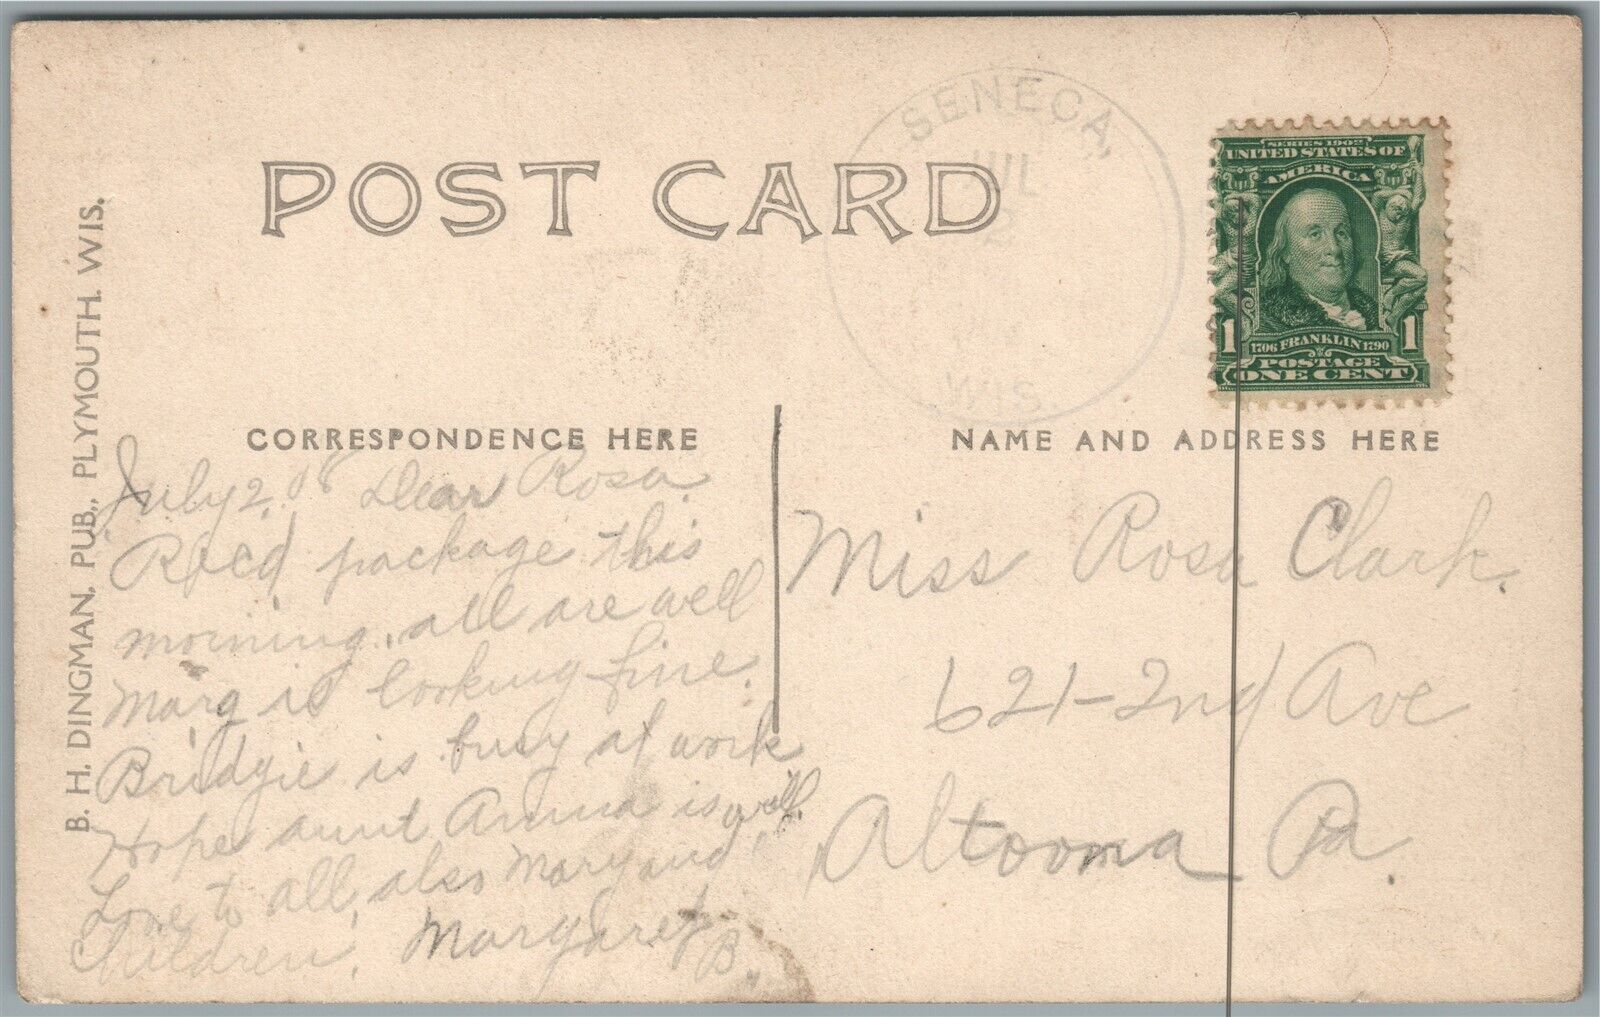 POST CARD
SENECA,
JUL
2
WIS.
SERIES 1902
UNITED STATES OF
AMERICA
1 1
1706 FRANKLIN 1790
POSTAGE
ONE CENT
B. H. DINGMAN, PUB., PLYMOUTH. WIS.
CORRESPONDENCE HERE
July 2, 08 Dear Rosa.
Rec'd package this
morning. all are well
Marg is looking fine.
Bridgie is busy at work
Hope aunt Anna is well.
Love to all, also Mary and
Children, Margaret
B.
NAME AND ADDRESS HERE
Miss Rosa Clark.
621-2nd Ave
Altoona Pa.